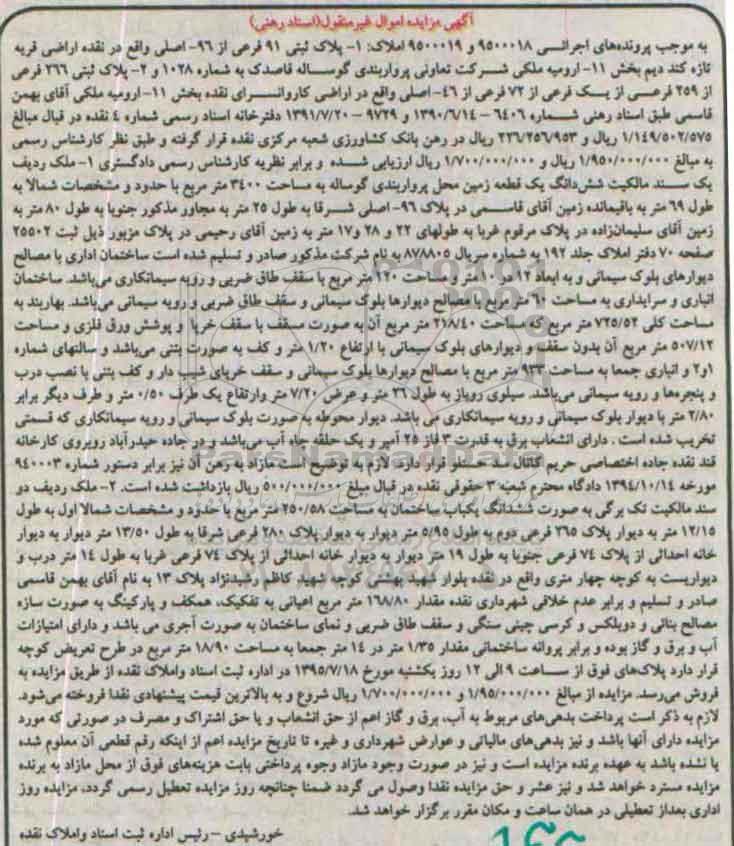 آگهی مزایده اموال غیرمنقول(اسناد رهنی)
به موجب پرونده‌های اجرائی ۹۵۰۰۰۱۸ و ۹۵۰۰۰۱۹ املاک: ۱- پلاک ثبتی ۹۱ فرعی از ۹۶- اصلی واقع در نقده اراضی قریه
تازه کند دیم بخش ۱۱- ارومیه ملکی شرکت تعاونی پرواربندی گوساله قاصدک به شماره ۱۰۲۸ و ۲- پلاک ثبتی ۲۶۶ فرعی
از ۲۵۹ فرعی از یک فرعی از ۷۲ فرعی از ۴۶- اصلی واقع در اراضی کاروانسرای نقده بخش ۱۱- ارومیه ملکی آقای بهمن
قاسمی طبق اسناد رهنی شماره ۶۴۰۶ - ۱۳۹۰/۶/۱۴ و ۹۷۲۹ - ۱۳۹۱/۷/۲۰ دفترخانه اسناد رسمی شماره ۴ نقده در قبال مبالغ
۱/۱۴۹/۵۰۲/۵۷۵ ریال و ۲۳۶/۲۵۶/۹۵۳ ریال در رهن بانک کشاورزی شعبه مرکزی نقده قرار گرفته و طبق نظر کارشناس رسمی
به مبالغ ۱/۹۵۰/۰۰۰/۰۰۰ ریال و ۱/۷۰۰/۰۰۰/۰۰۰ ریال ارزیابی شده و برابر نظریه کارشناس رسمی دادگستری ۱- ملک ردیف
یک سند مالکیت شش‌دانگ یک قطعه زمین محل پرواربندی گوساله به مساحت ۳۴۰۰ متر مربع با حدود و مشخصات شمالا به
طول ۶۹ متر به باقیمانده زمین آقای قاسمی در پلاک ۹۶- اصلی شرقا به طول ۲۵ متر به مجاور مذکور جنوبا به طول ۸۰ متر به
زمین آقای سلیمان‌زاده در پلاک مرقوم غربا به طولهای ۲۲ و ۲۸ و ۱۷ متر به زمین آقای رحیمی در پلاک مزبور ذیل ثبت ۲۵۵۰۲
صفحه ۷۰ دفتر املاک جلد ۱۹۲ به شماره سریال ۸۷۸۸۰۵ به نام شرکت مذکور صادر و تسلیم شده است ساختمان اداری با مصالح
دیوارهای بلوک سیمانی و به ابعاد ۱۲در۱۰ متر و مساحت ۱۲۰ متر مربع با سقف طاق ضربی و رویه سیمانکاری می‌باشد. ساختمان
انباری و سرایداری به مساحت ۶۰ متر مربع با مصالح دیوارها بلوک سیمانی و سقف طاق ضربی و رویه سیمانی می‌باشد. بهاربند به
مساحت کلی ۷۲۵/۵۲ متر مربع که مساحت ۲۱۸/۴۰ متر مربع آن به صورت مسقف با سقف خرپا و پوشش ورق فلزی و مساحت
۵۰۷/۱۲ متر مربع آن بدون سقف و دیوارهای بلوک سیمانی با ارتفاع ۱/۲۰ متر و کف به صورت بتنی می‌باشد و سالنهای شماره
۱و۲ و انباری جمعا به مساحت ۹۳۳ متر مربع با مصالح دیوارها بلوک سیمانی و سقف خرپای شیب دار و کف بتنی با نصب درب
و پنجره‌ها و رویه سیمانی می‌باشد. سیلوی روباز به طول ۲۶ متر و عرض ۷/۲۰ متر وارتفاع یک طرف ۰/۵۰ متر و طرف دیگر برابر
۲/۸۰ متر با دیوار بلوک سیمانی و رویه سیمانکاری می باشد. دیوار محوطه به صورت بلوک سیمانی و رویه سیمانکاری که قسمتی
تخریب شده است . دارای انشعاب برق به قدرت ۳ فاز ۲۵ آمپر و یک حلقه چاه آب می‌باشد و در جاده حیدرآباد روبروی کارخانه
قند نقده جاده اختصاصی حریم کانال سد حسنلو قرار دارد. لازم به توضیح است مازاد به رهن آن نیز برابر دستور شماره ۹۴۰۰۰۳
مورخه ۱۳۹۴/۱۰/۱۴ دادگاه محترم شعبه ۳ حقوقی نقده در قبال مبلغ ۵۰۰/۰۰۰/۰۰۰ ریال بازداشت شده است. ۲- ملک ردیف دو
سند مالکیت تک برگی به صورت ششدانگ یکباب ساختمان به مساحت ۲۵۰/۵۸ متر مربع با حدود و مشخصات شمالا اول به طول
۱۲/۱۵ متر به دیوار پلاک ۲۶۵ فرعی دوم به طول ۵/۹۵ متر دیوار به دیوار پلاک ۲۸۰ فرعی شرقا به طول ۱۳/۵۰ متر دیوار به دیوار
خانه احداثی از پلاک ۷۴ فرعی جنوبا به طول ۱۹ متر دیوار به دیوار خانه احداثی از پلاک ۷۴ فرعی غربا به طول ۱۴ متر درب و
دیواریست به کوچه چهار متری واقع در نقده بلوار شهید بهشتی کوچه شهید کاظم رشیدنژاد پلاک ۱۳ به نام آقای بهمن قاسمی
صادر و تسلیم و برابر عدم خلافی شهرداری نقده مقدار ۱۶۸/۸۰ متر مربع اعیانی به تفکیک، همکف و پارکینگ به صورت سازه
مصالح بنائی و دوبلکس و کرسی چینی سنگی و سقف طاق ضربی و نمای ساختمان به صورت آجری می باشد و دارای امتیازات
آب و برق و گاز بوده و برابر پروانه ساختمانی مقدار ۱/۳۵ متر در ۱۴ متر جمعا به مساحت ۱۸/۹۰ متر مربع در طرح تعریض کوچه
قرار دارد پلاک‌های فوق از ساعت ۹ الی ۱۲ روز یکشنبه مورخ ۱۳۹۵/۷/۱۸ در اداره ثبت اسناد واملاک نقده از طریق مزایده به
فروش می‌رسد. مزایده از مبالغ ۱/۹۵/۰۰۰/۰۰۰ و ۱/۷۰۰/۰۰۰/۰۰۰ ریال شروع و به بالاترین قیمت پیشنهادی نقدا فروخته می‌شود.
لازم به ذکر است پرداخت بدهی‌های مربوط به آب، برق و گاز اعم از حق انشعاب و یا حق اشتراک و مصرف در صورتی که مورد
مزایده دارای آنها باشد و نیز بدهی‌های مالیاتی و عوارض شهرداری و غیره تا تاریخ مزایده اعم از اینکه رقم قطعی آن معلوم شده
یا نشده باشد به عهده برنده مزایده است و نیز در صورت وجود مازاد وجوه پرداختی بابت هزینه‌های فوق از محل مازاد به برنده
مزایده مسترد خواهد شد و نیز عشر و حق مزایده نقدا وصول می گردد ضمنا چنانچه روز مزایده تعطیل رسمی گردد، مزایده روز
اداری بعداز تعطیلی در همان ساعت و مکان مقرر برگزار خواهد شد.
خورشیدی – رئیس اداره ثبت اسناد واملاک نقده
ParsNamadData